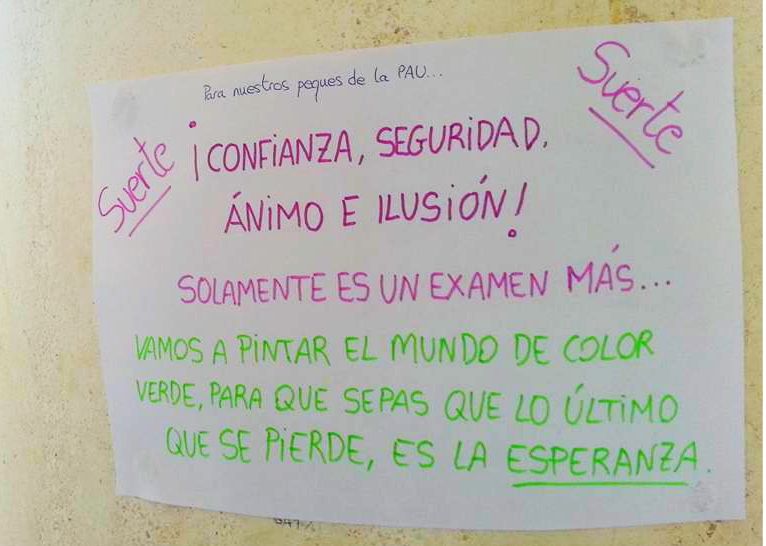 Para nuestros peques de la PAU...
Suerte
Suerte
¡CONFIANZA, SEGURIDAD,
ÁNIMO E ILUSIÓN!
SOLAMENTE ES UN EXAMEN MÁS...
VAMOS A PINTAR EL MUNDO DE COLOR
VERDE, PARA QUE SEPAS QUE LO ÚLTIMO
QUE SE PIERDE, ES LA ESPERANZA.